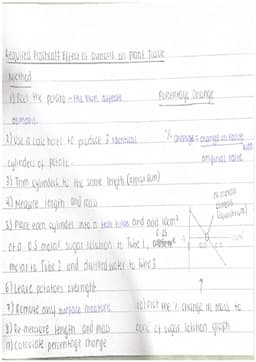 Required Practical: Effect of Osmosis on Plant Tissue
Method
1) Peel the potato - the skin affects
osmosis.
Percentage Change
2) Use a cork borer to produce 3 identical
cylinders of potato.
% change = change in value x100
original value
3) Trim cylinders to the same length
4) Measure length and mass
5) Place each cylinder into a test tube and add 10cm³
of a 0.5 molar sugar solution to Tube 1, 0.25
molar to Tube 2 and distilled water to Tube 3
no overall
osmosis
6) Leave potatoes overnight
7) Remove any surface moisture
8) Re-measure length and mass
9) Calculate percentage change
10) Plot the % change in mass to
conc of sugar solution graph